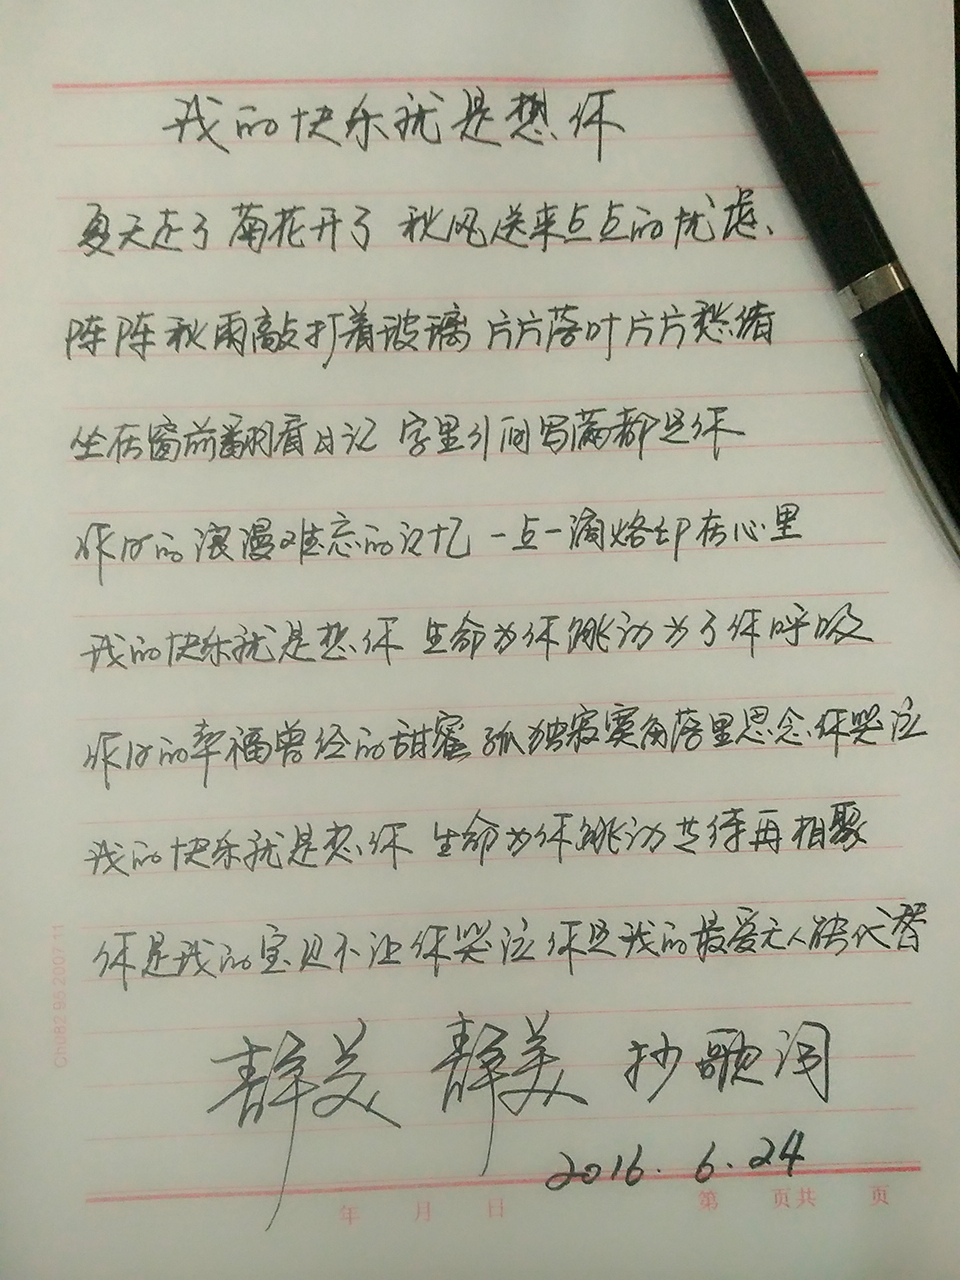 我的快乐就是想你
夏天走了 菊花开了 秋风送来点点的忧虑、
阵阵秋雨敲打着玻璃 片片落叶片片愁绪
坐在窗前翻看日记 字里引间写满都是你
昨日的浪漫难忘的记忆 一点一滴烙印在心里
我的快乐就是想你 生命为你跳动为了你呼吸
昨日的幸福曾经的甜蜜 孤独寂寞角落里思念你哭泣
我的快乐就是想你 生命为你跳动共待再相聚
你是我的宝贝不让你哭泣 你是我的最爱无人能代替
静美 静美 抄歌词
2016.6.24
年 月 日 第 页共 页